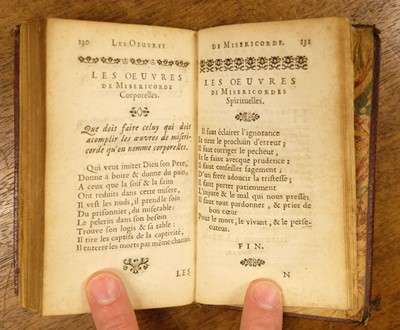 130 LES OEUVRES
LES OEUVRES
DE MISERICORDE
Corporelles.
Que doit faire celuy qui doit
acomplir les œuvres de miseri-
corde qu'on nomme corporelles.
Qui veut imiter Dieu son Pere,
Donne à boire & donne du pain,
A ceux que la soif & la faim
Ont reduits dans cette misere,
Il vest les nuds, il prend le soin
Du prisonnier, du miserable:
Le pelerin dans son besoin
Trouve son logis & sa table:
Il tire les captifs de la captivité,
Il enterre les morts par même charité.
LES
DE MISERICORDE. 131
LES OEUVRES
DE MISERICORDES
Spirituelles.
Il faut éclairer l'ignorance
Et tirer le prochain d'erreur;
Il faut corriger le pecheur,
Et le faire avecque prudence:
Il faut conseiller sagement;
D'un frere adoucir la tristesse;
Il faut porter patiemment
L'injure & le mal qui nous presse;
Il faut tous pardonner, & prier de
bon cœur
Pour le mort, le vivant, & le perse-
cuteur.
FIN.
N